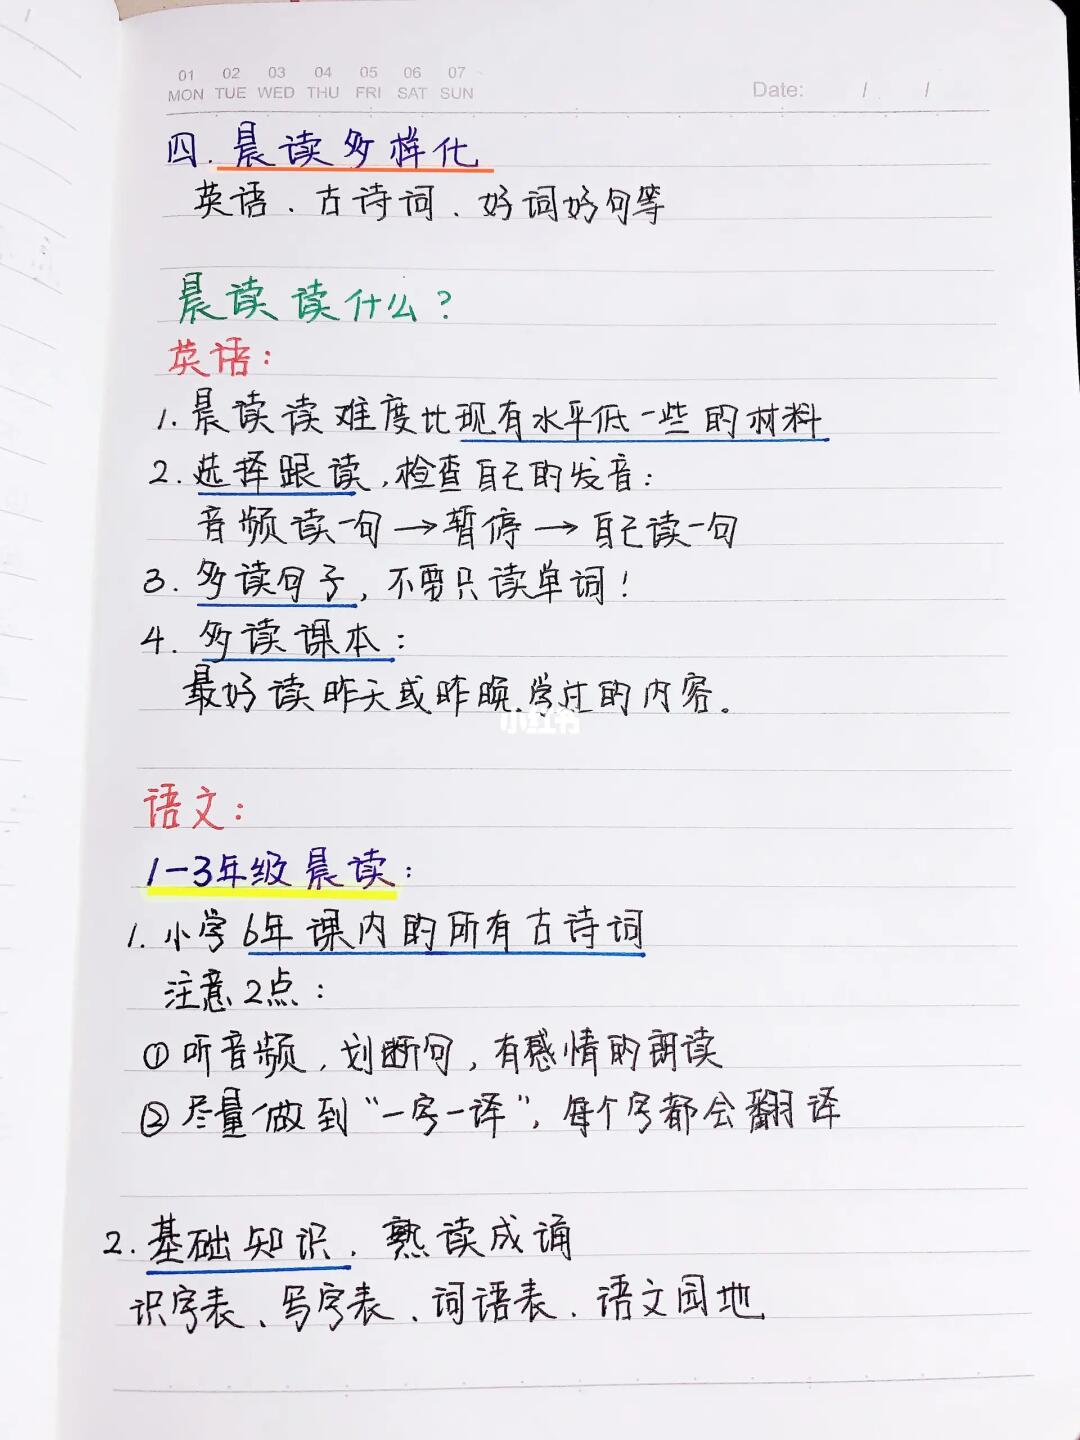 01 02 03 04 05 06 07
MON TUE WED THU FRI SAT SUN
Date: / /
四.晨读多样化
英语、古诗词、好词好句等
晨读读什么?
英语:
1.晨读读难度比现有水平低一些的材料
2.选择跟读,检查自己的发音:
音频读一句→暂停→自己读一句
3.多读句子,不要只读单词!
4.多读课本:
最好读昨天或昨晚学过的内容。
小红书
语文:
1-3年级晨读:
1.小学6年课内的所有古诗词
注意2点:
①听音频,划断句,有感情的朗读
②尽量做到“一字一译”,每个字都会翻译
2.基础知识、熟读成诵
识字表、写字表、词语表、语文园地